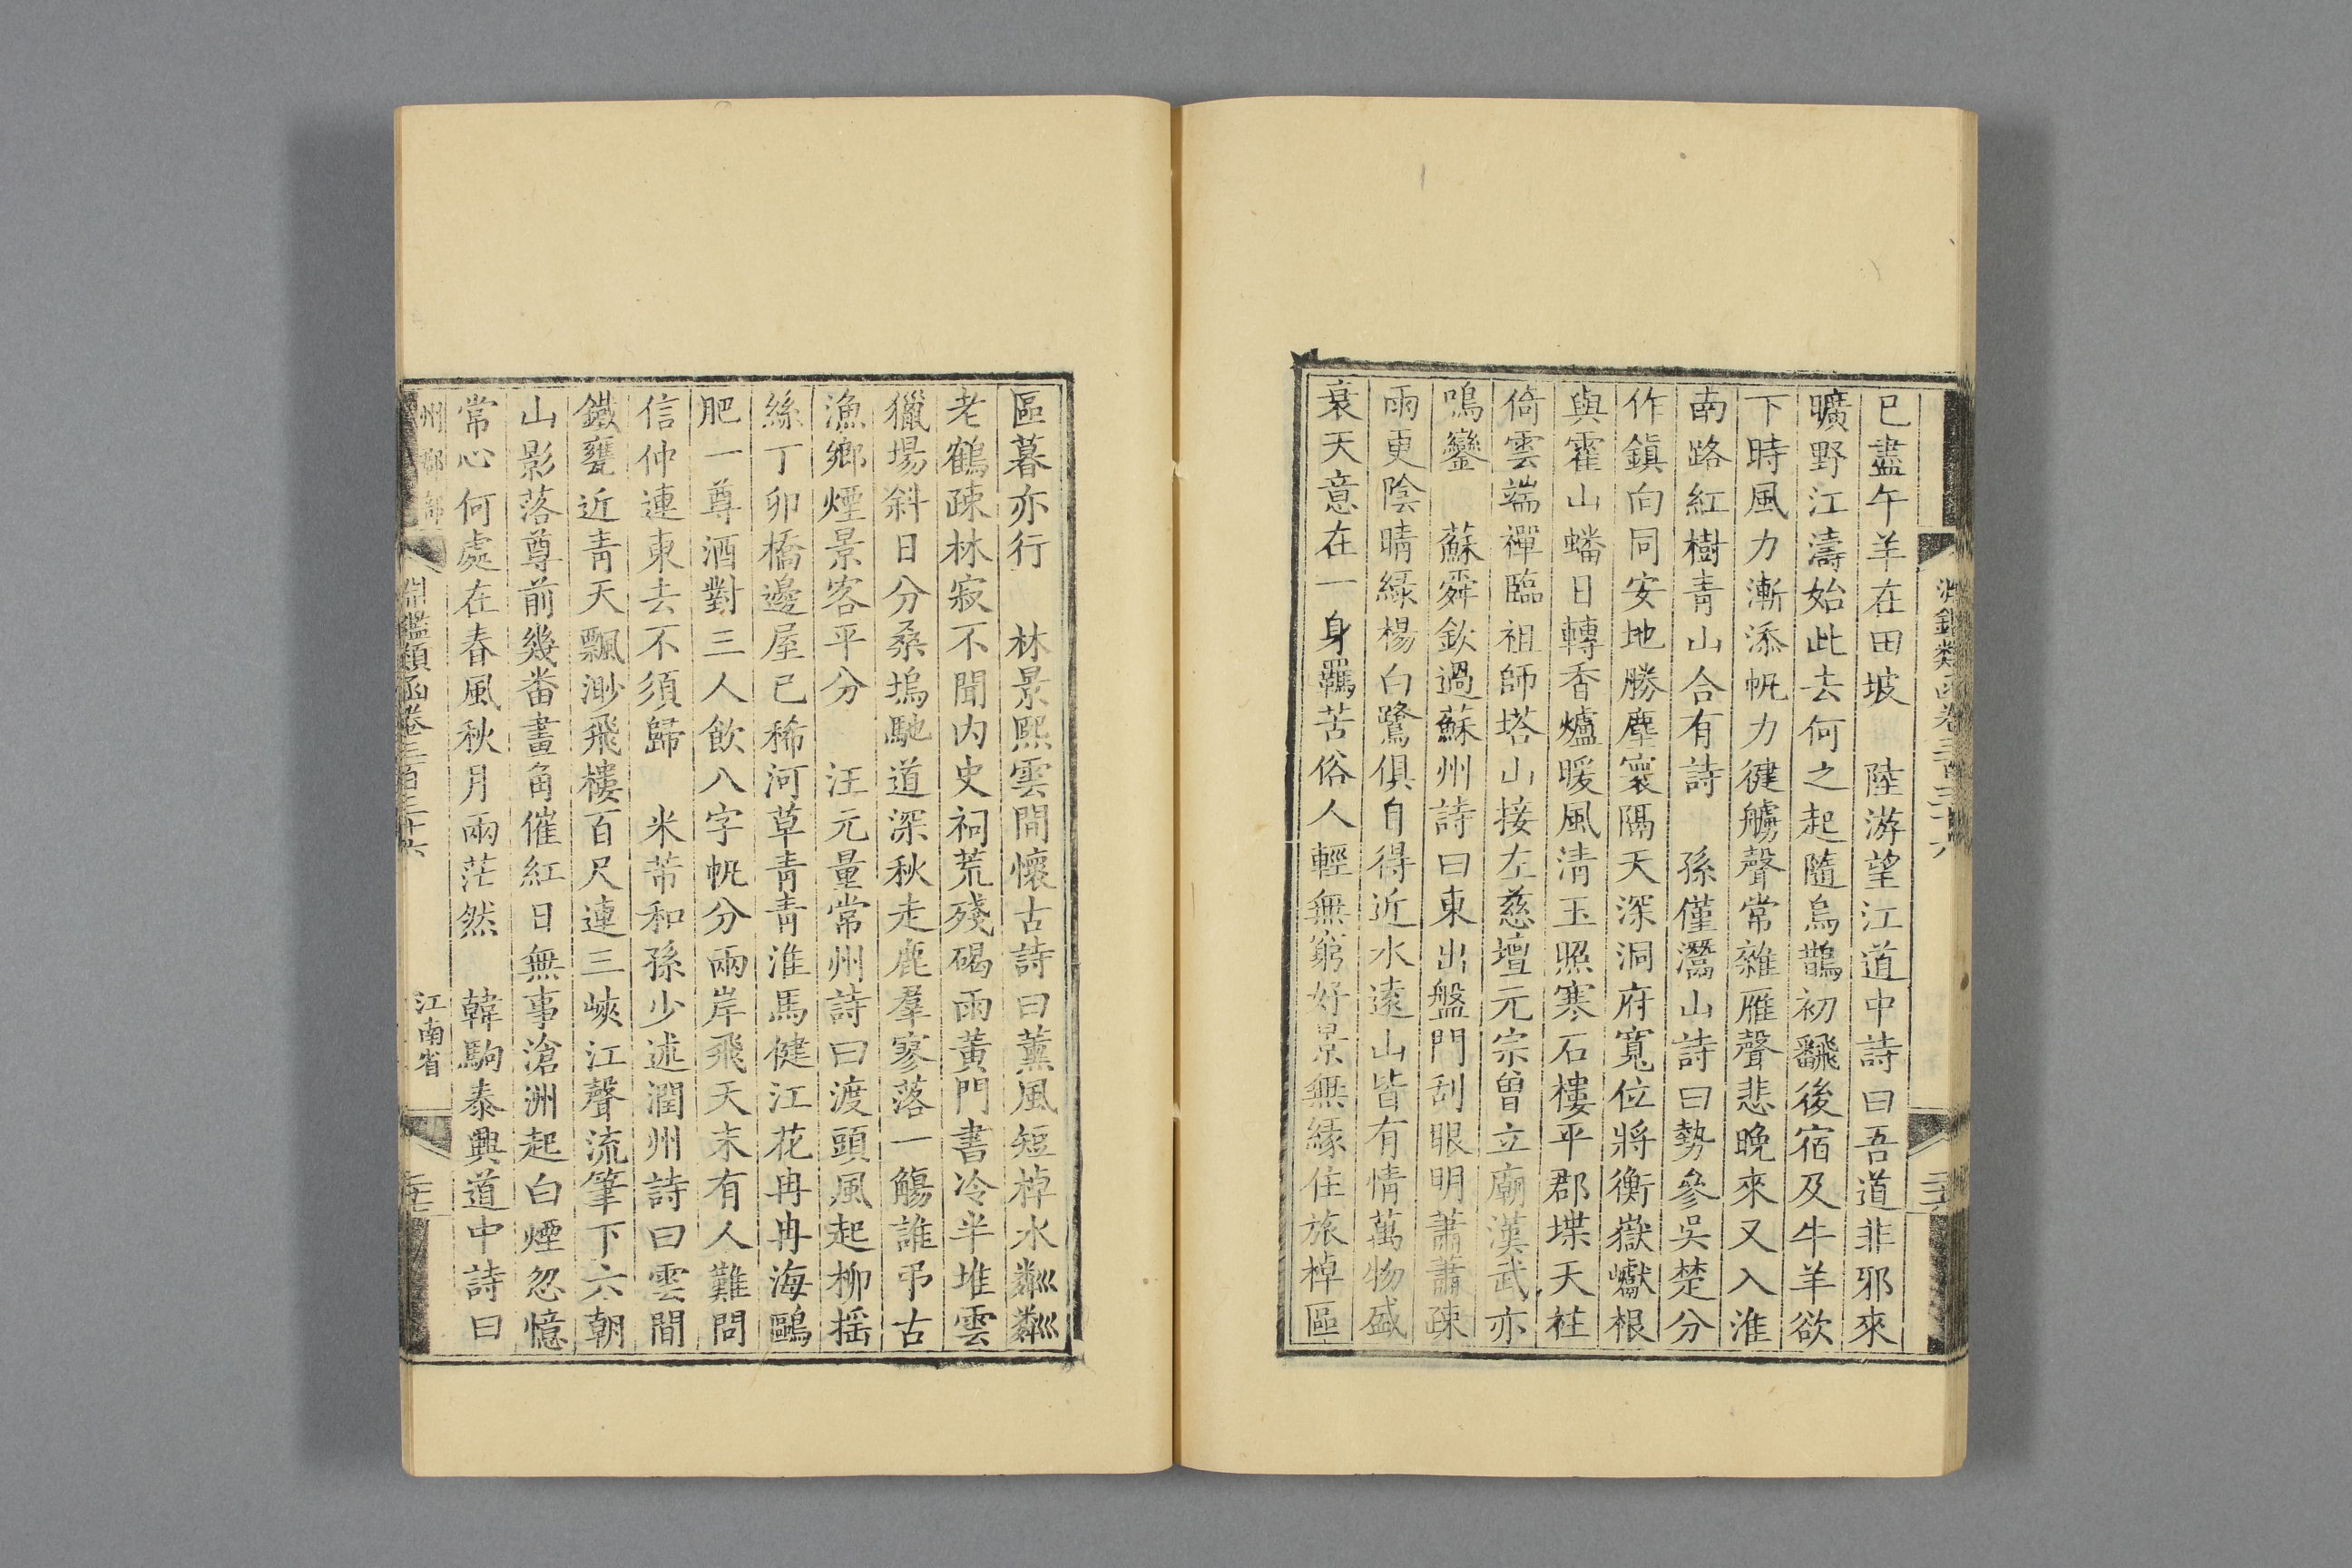 已盡午羊在田坡　陸游望江道中詩曰吾道非邪來
曠野江濤始此去何之起隨烏鵲初飜後宿及牛羊欲
下時風力漸添帆力健艣聲常雜雁聲悲晚來又入淮
南路紅樹青山合有詩　孫僅灊山詩曰勢參吳楚分
作鎮向同安地勝塵寰隔天深洞府寬位將衡嶽巘根
與霍山蟠日轉香爐暖風清玉照寒石樓平郡堞天柱
倚雲端禪臨祖師塔山接左慈壇元宗曾立廟漢武亦
鳴鑾　蘇舜欽過蘇州詩曰東出盤門刮眼明蕭蕭疎
雨更陰晴綠楊白鷺俱自得近水遠山皆有情萬物盛
衰天意在一身羈苦俗人輕無窮好景無緣住旅棹區
淵鑑類函卷三百三十六
區暮亦行　林景熙雲間懷古詩曰薰風短棹水粼粼
老鶴疎林寂不聞内史祠荒殘碣雨黃門書冷半堆雲
獵場斜日分桑塢馳道深秋走鹿羣寥落一觴誰弔古
漁鄉煙景客平分　汪元量常州詩曰渡頭風起柳搖
絲丁卯橋邊屋已稀河草青青淮馬健江花冉冉海鷗
肥一尊酒對三人飲八字帆分兩岸飛天末有人難問
信仲連東去不須歸　米芾和孫少述潤州詩曰雲間
鐵甕近青天飄渺飛樓百尺連三峽江聲流筆下六朝
山影落尊前幾畨畫角催紅日無事滄洲起白煙忽憶
常心何處在春風秋月兩茫然　韓駒泰興道中詩曰
州郡部　淵鑑類函卷三百三十六　江南省